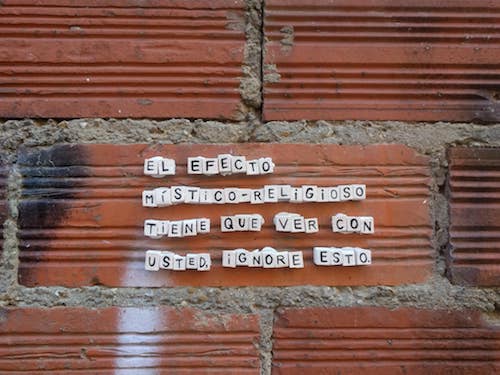 EL EFECTO
MÍSTICO-RELIGIOSO
TIENE QUE VER CON
USTED, IGNORE ESTO.